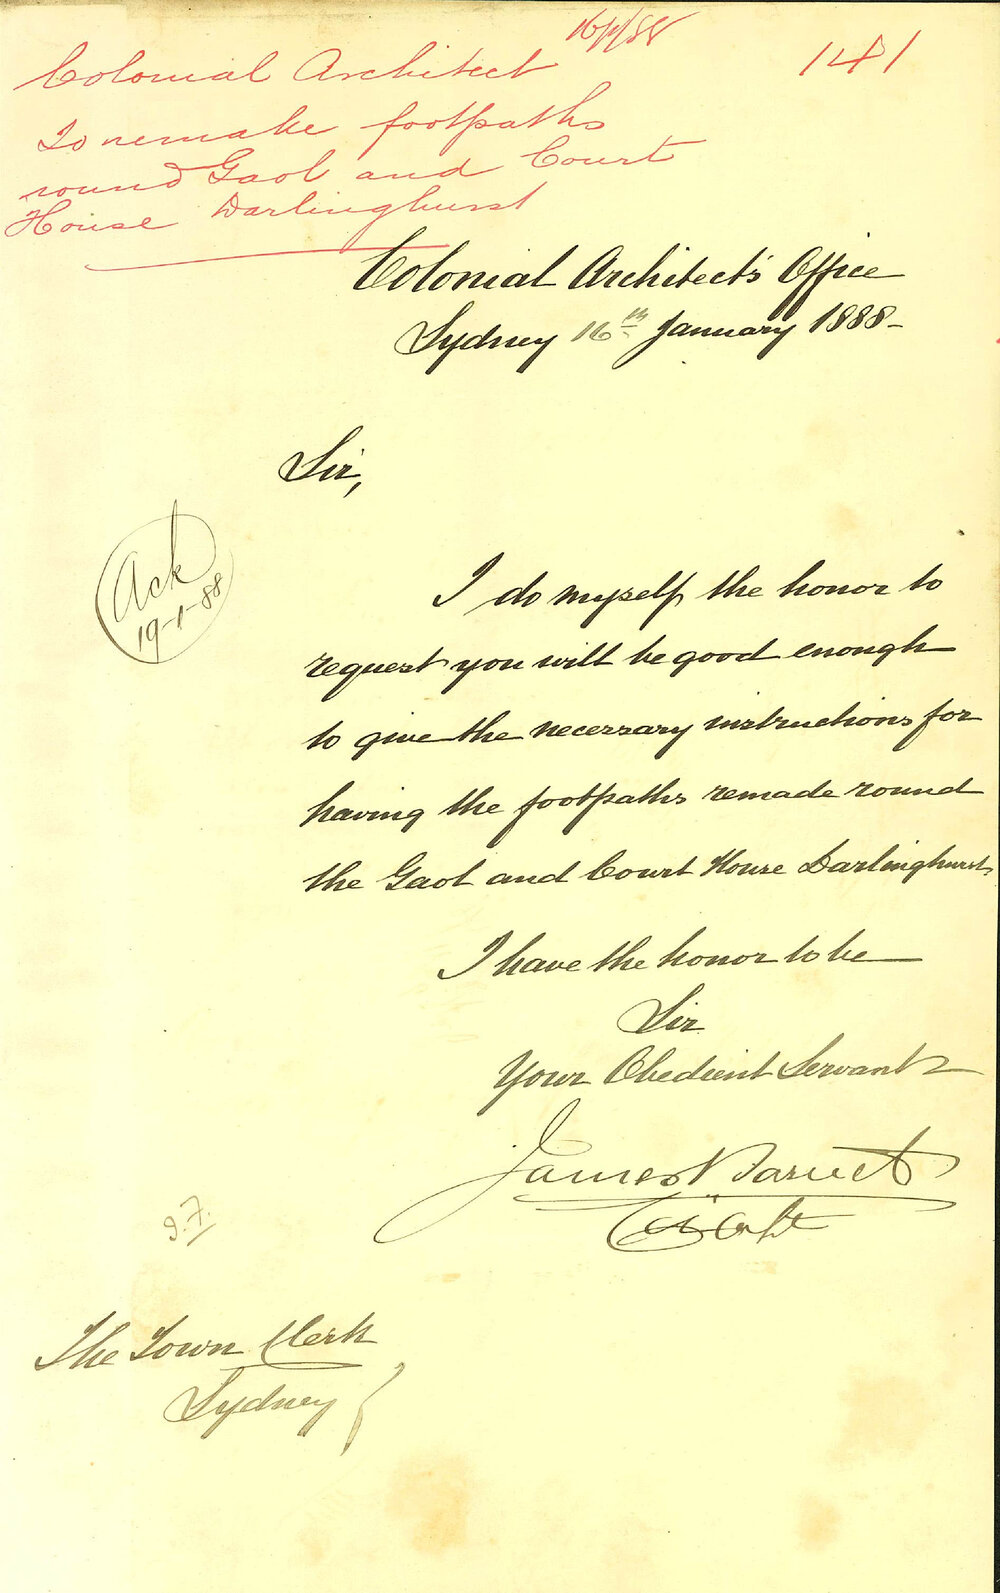 16/1/88
141
Colonial Architect
To remake footpaths
round Gaol and Court
House Darlinghurst
Colonial Architect's Office
Sydney 16th January 1888-
Sir,
Ack
19-1-88
I do myself the honor to
request you will be good enough
to give the necessary instructions for
having the footpaths remade round
the Gaol and Court House Darlinghurst,
I have the honor to be
Sir
Your Obedient Servant
James Barnet
The Town Clerk
Sydney